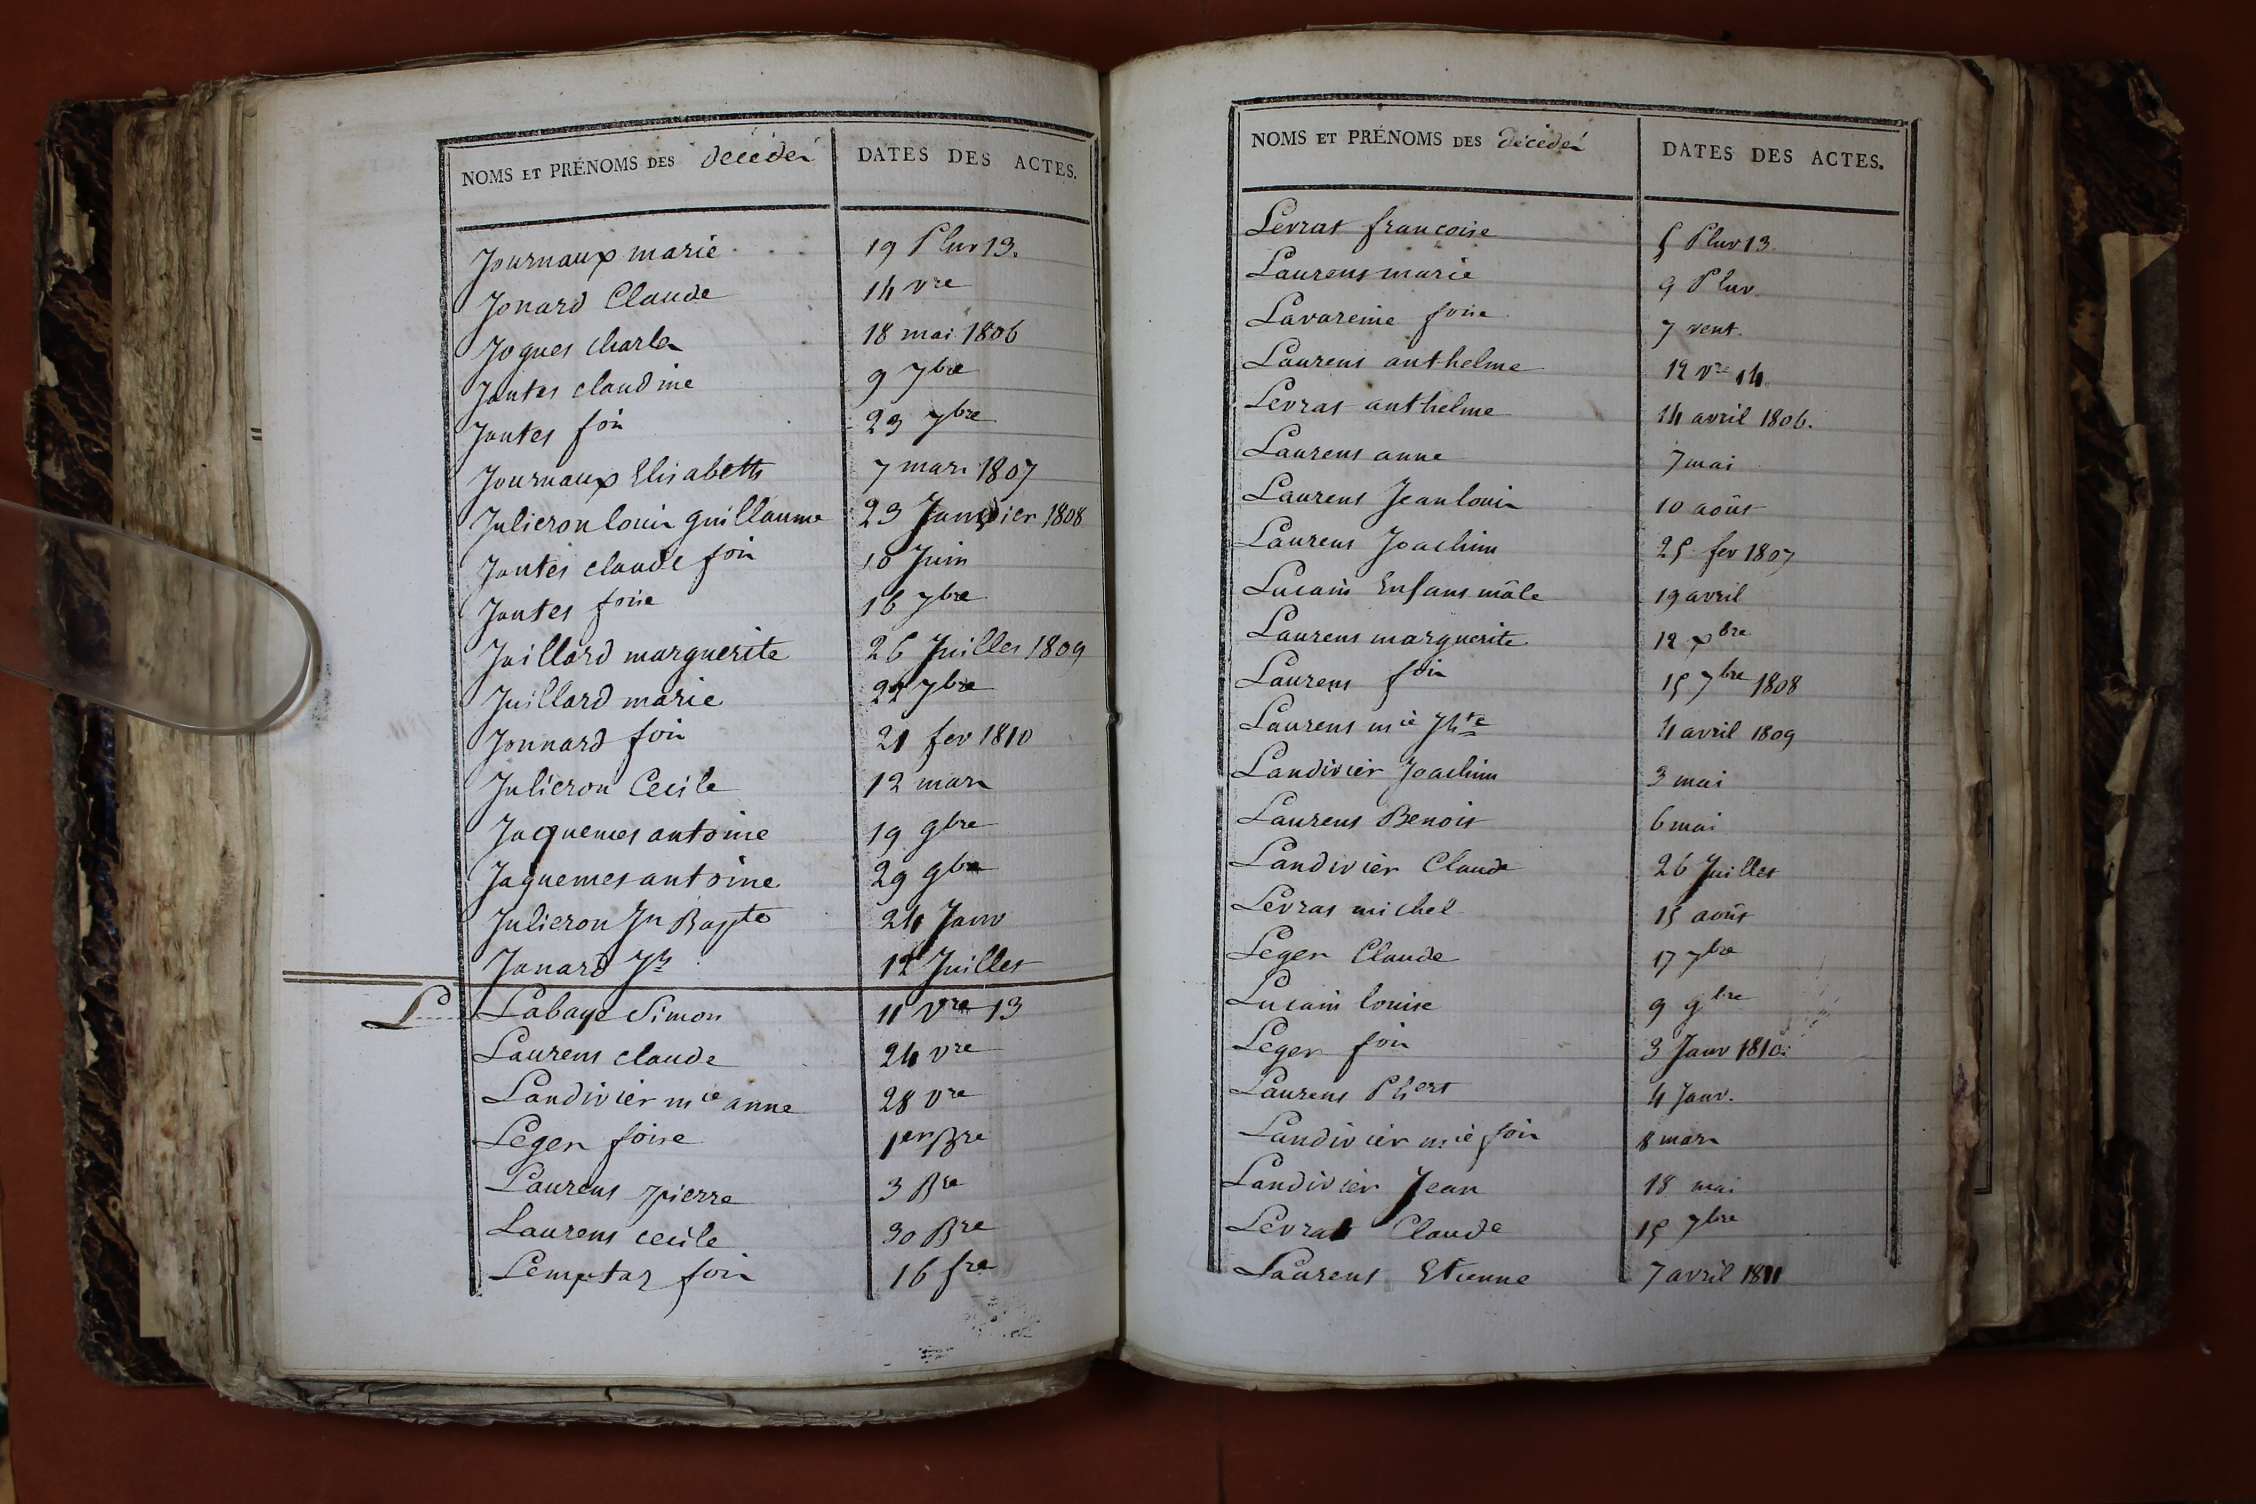 NOMS ET PRÉNOMS DES Décédés DATES DES ACTES.
Journaux marie 19 Pluv 13.
Jonard Claude 14 vre
Jogues charles 18 mai 1806
Jantes claudine 9 7bre
Jantes fois 23 7bre
Journaux Elisabeth 7 mars 1807
Julieron louis guillaume 23 Janvier 1808
Jantes claude fois 10 Juin
Jantes foise 16 7bre
Juillard marguerite 26 Juillet 1809
Juillard marie 7bre
Jonnard fois 21 fev 1810
Julieron Cecile 12 mars
Jacquemes antoine 19 9bre
Jaquemes antoine 29 9bre
Julieron Jn Bapte 24 Janv
Jonard Jh 12 Juillet
L Labaye Simon 11 Vre 13
Laurens claude 24 vre
Landivier mie anne 28 vre
Leger foise 1er Bre
Laurens pierre 3 Bre
Laurens cecile 30 Bre
Lemptaz fois 16 fre
NOMS ET PRÉNOMS DES Décédés DATES DES ACTES.
Levrat francoise 5 Pluv 13.
Laurens marie 9 Pluv.
Lavareine foise 7 vent.
Laurens anthelme 12 vre 14.
Levrat anthelme 14 avril 1806.
Laurens anne 7 mai
Laurens Jean louis 10 août
Laurens Joachim 25 fev 1807
Lucain Enfant mâle 19 avril
Laurens marguerite 12 xbre
Laurens fois 15 7bre 1808
Laurens mie Jhte 4 avril 1809
Landivier Joachim 3 mai
Laurens Benoit 6 mai
Landivier Claude 26 Juillet
Levrat michel 15 août
Leger Claude 17 7bre
Lucain louise 9 9bre
Leger fois 3 Janv 1810.
Laurens Phert 4 Janv.
Landivier mie fois 8 mars
Landivier Jean 18 mai
Levrat Claude 15 7bre
Laurens Etienne 7 avril 1811